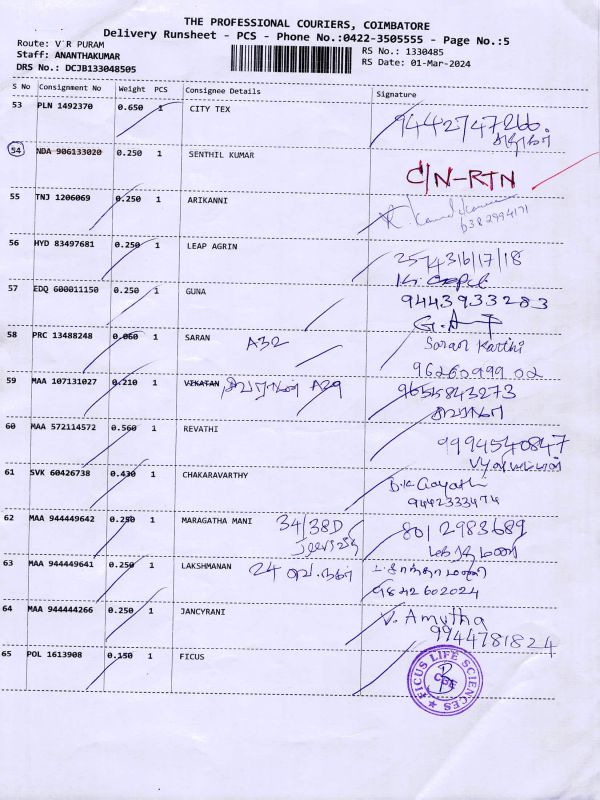 THE PROFESSIONAL COURIERS, COIMBATORE
Delivery Runsheet - PCS - Phone No.:0422-3505555 - Page No.:5
Route: V R PURAM
Staff: ANANTHAKUMAR
DRS No.: DCJB133048505
RS No.: 1330485
RS Date: 01-Mar-2024
S No Consignment No Weight PCS Consignee Details Signature
53 PLN 1492370 0.650 1 CITY TEX 9442747266
54 NDA 906133020 0.250 1 SENTHIL KUMAR C/N-RTN
55 TNJ 1206069 0.250 1 ARIKANNI
56 HYD 83497681 0.250 1 LEAP AGRIN 2574316/17/18
57 EDQ 600011150 0.250 1 GUNA 9443933283
58 PRC 13488248 0.060 1 SARAN A32 Saran Karthi
9626099902
59 MAA 107131027 0.210 1 VIKATAN சிவராமன் A29 9655843273
சிவராமன்
60 MAA 572114572 0.560 1 REVATHI 9994540847
61 SVK 60426738 0.430 1 CHAKARAVARTHY D.K. Gayathri
9442333474
62 MAA 944449642 0.250 1 MARAGATHA MANI 34/38D 8012983689
63 MAA 944449641 0.250 1 LAKSHMANAN 24
9842602024
64 MAA 944444266 0.250 1 JANCYRANI V. Amutha
9944781824
65 POL 1613908 0.150 1 FICUS
FICUS LIFE SCIENCES
CBE